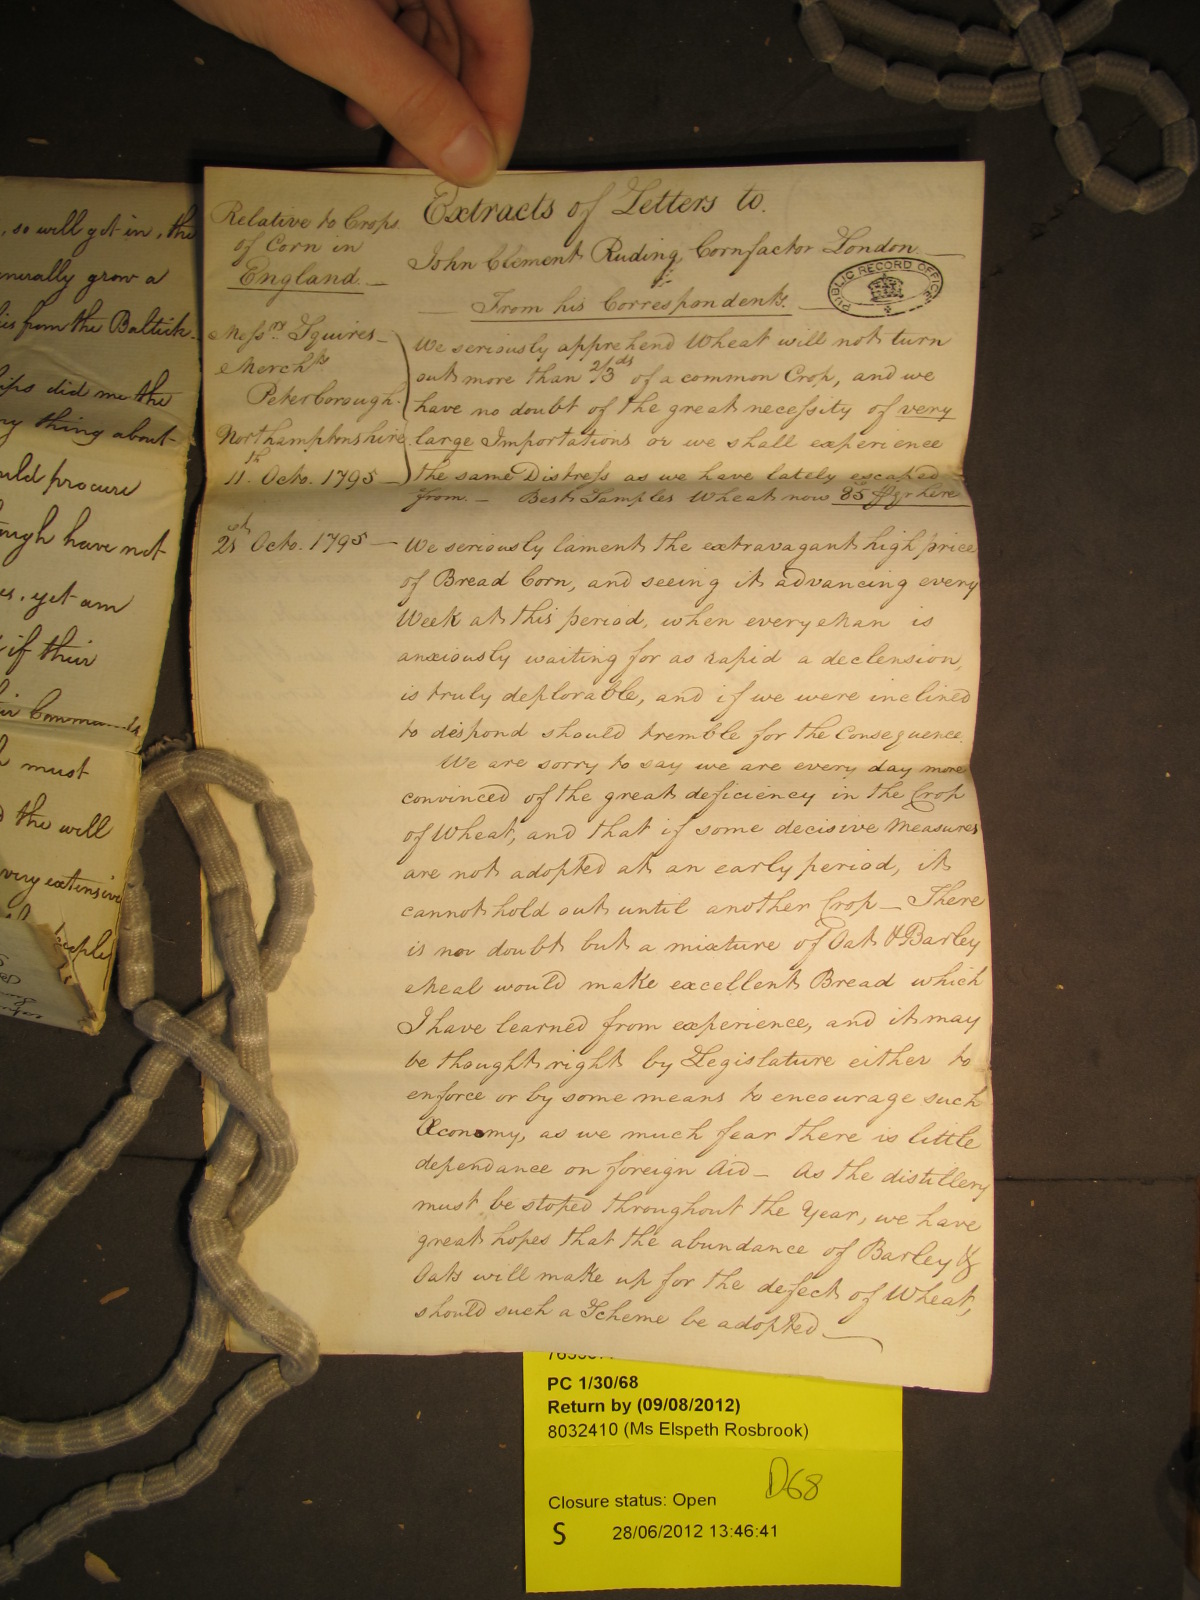 , so will get in, the
enerally grow a
ies from the Baltick
ips did me the
ny thing about
uld procure
ough have not
es, yet am
if their
eir Comma
must
the will
very extensive
people
Relative to Crops
of Corn in
England. —
Extracts of Letters to.
John Clement Ruding, Cornfactor London —
From his Correspondents.
PUBLIC RECORD OFFICE
Messrs. Squires —
Merchts
Peterborough.
Northamptonshire
11th Octo. 1795 —
We seriously apprehend Wheat will not turn
out more than 2/3ds of a common Crop, and we
have no doubt of the great necessity of very
large Importations or we shall experience
the same Distress as we have lately escaped
from. — Best Samples Wheat now 85/ qr here
21st Octo. 1795 —
We seriously lament the extravagant high price
of Bread Corn, and seeing it advancing every
Week at this period, when every Man is
anxiously waiting for as rapid a declension,
is truly deplorable, and if we were inclined
to dispond should tremble for the Consequence.
We are sorry to say we are every day more
convinced of the great deficiency in the Crop
of Wheat, and that if some decisive Measures
are not adopted at an early period, it
cannot hold out until another Crop — There
is no doubt but a mixture of Oat & Barley
Meal would make excellent Bread which
I have learned from experience, and it may
be thought right by Legislature either to
enforce or by some means to encourage such
Œconomy, as we much fear there is little
dependance on foreign Aid — As the distillery
must be stoped throughout the Year, we have
great hopes that the abundance of Barley &
Oats will make up for the defect of Wheat,
should such a Scheme be adopted —
PC 1/30/68
Return by (09/08/2012)
8032410 (Ms Elspeth Rosbrook)
D68
Closure status: Open
S 28/06/2012 13:46:41